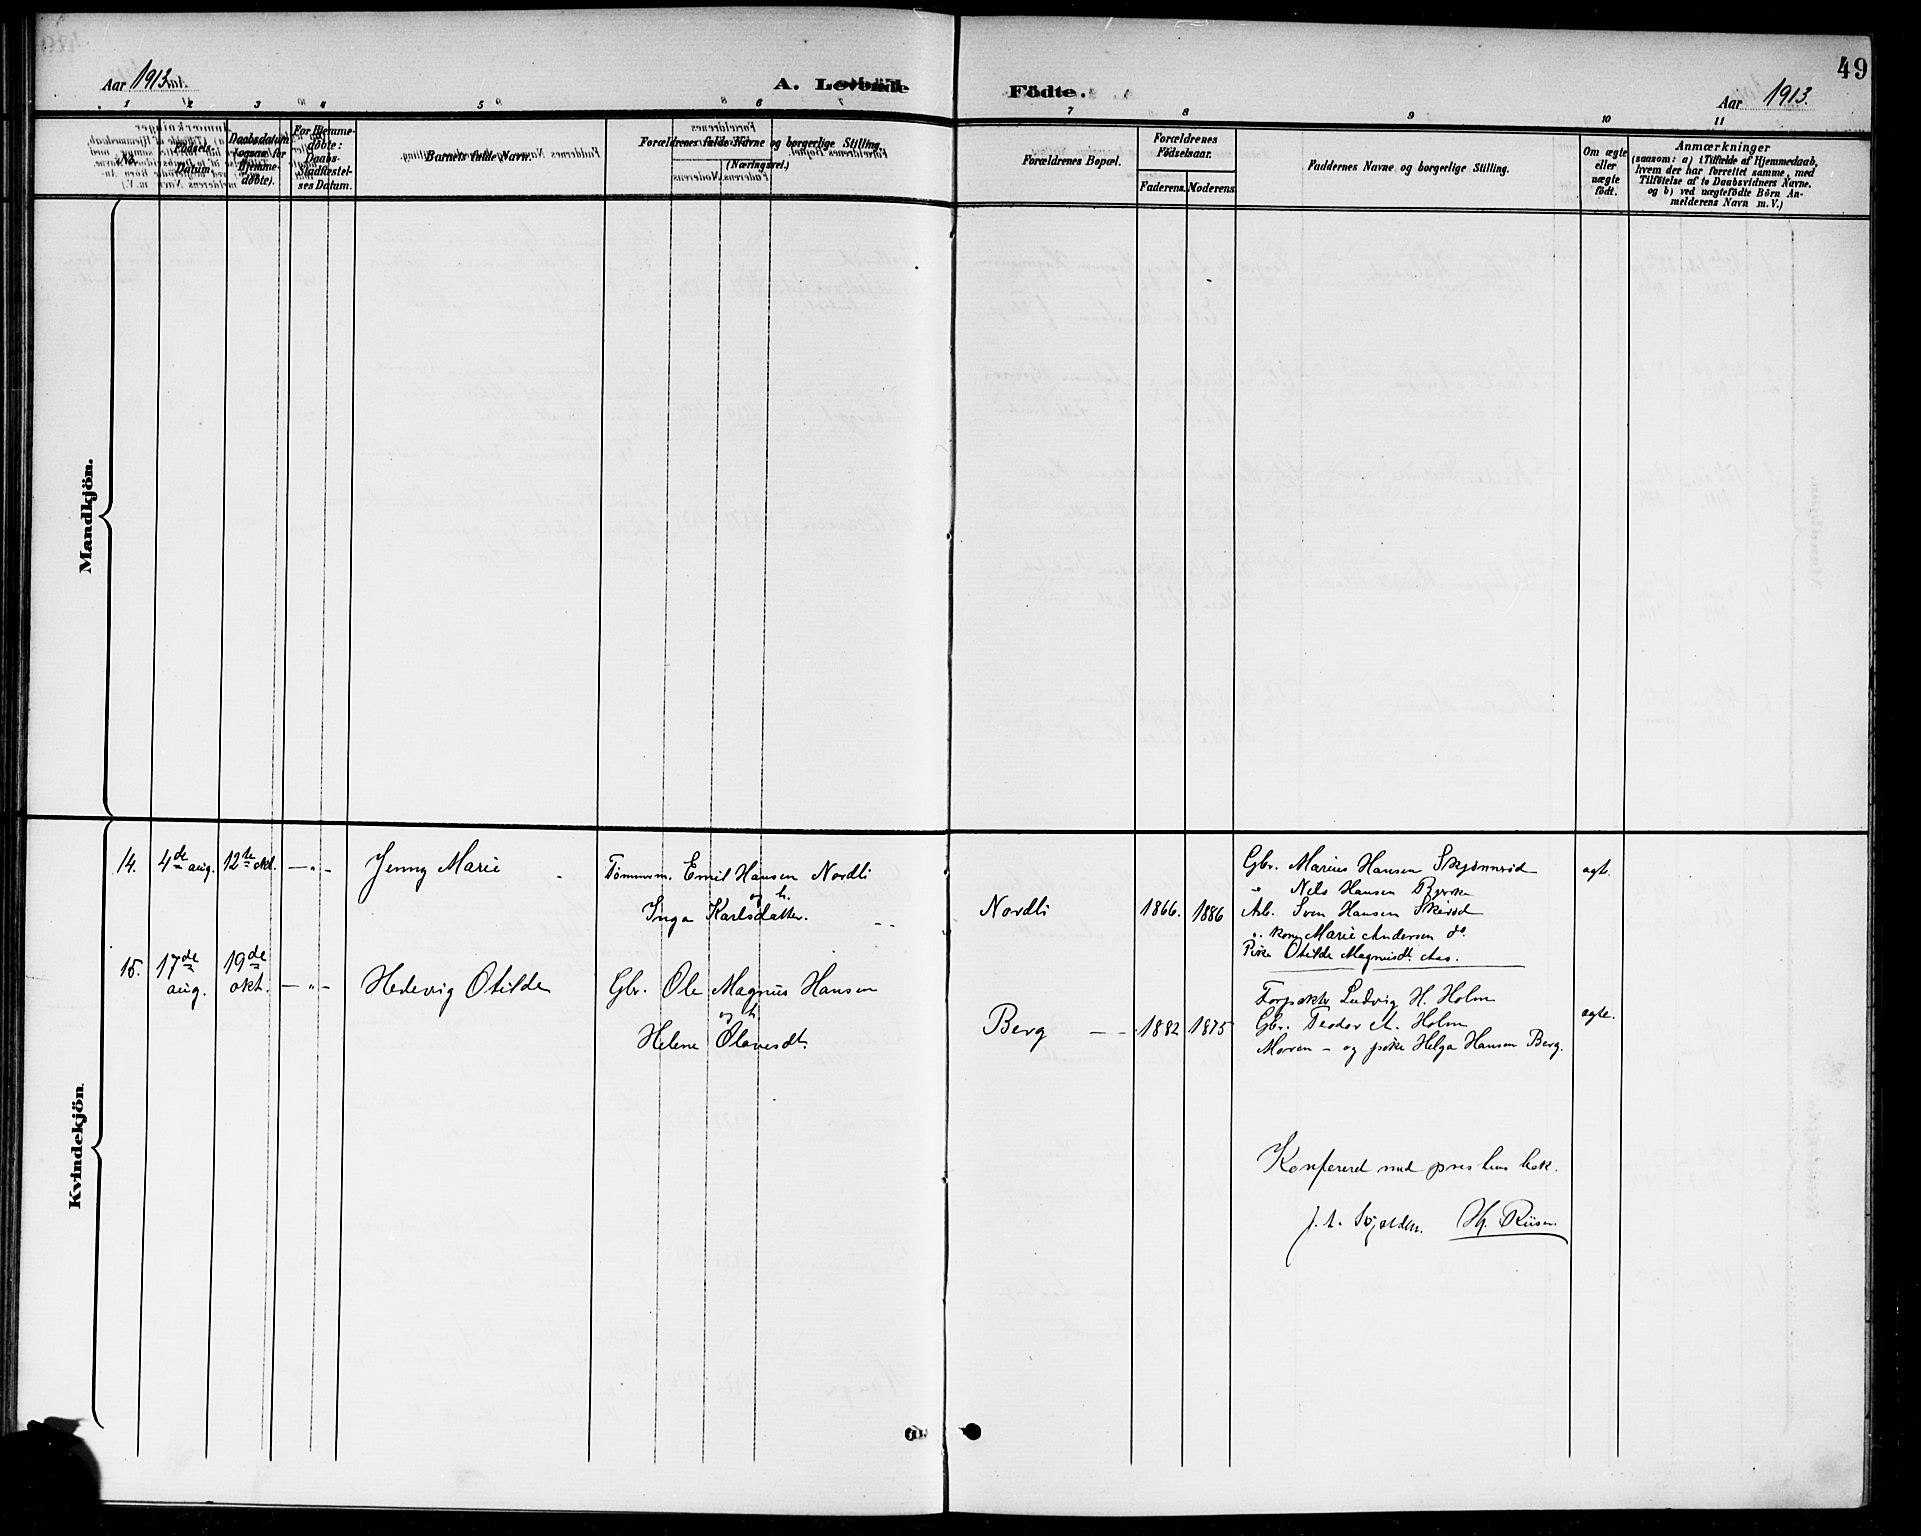 49
Aar 1913.
A. Levende
Födte.
Aar 1913.
1 2 3 4 5 6 7 8 9 10 11
No.
Födsels-Datum.
Daabsdatum (ogsaa for Hjemmedöbte).
For Hjemmedöbte: Daabs-Stadfæstelses Datum.
Barnets fulde Navn.
Forældrenes fulde Navne og borgerlige Stilling. (Næringsvei.)
Forældrenes Bopæl.
Forældrenes Födselsaar.
Faderens. Moderens.
Faddernes Navne og borgerlige Stilling.
Om ægte eller uægte födt.
Anmærkninger
(saasom: a) i Tilfælde af Hjemmedaab,
hvem der har forrettet samme, med
Tilföielse af to Daabsvidners Navne,
og b) ved uægtefödte Börn An-
melderens Navn m. V.)
Mandkjön.
Kvindekjön.
14. 4de aug. 12te okt. — „ — Jenny Marie
Tømmerm. Emil Hansen Nordli
og h.
Inga Karlsdatter.
Nordli 1866. 1886
Gbr. Marius Hansen Skjønnerød
„ Nils Hansen Bjerke
Arb. Sven Hansen Skirød
„ kone Marie Andersen do.
Pike Otilde Magnusdt. Aas.
ægte.
15. 17de aug. 19de okt. — „ — Hedevig Otilde
Gbr. Ole Magnus Hansen
og h.
Helene Olavesdt.
Berg — — 1882 1875
Forpakter Ludvig H. Holm
Gbr. Teodor A. Holm
Moren — og pike Helga Hansen Berg.
ægte.
Konfereret med prestens bok.
Hj. Riisen